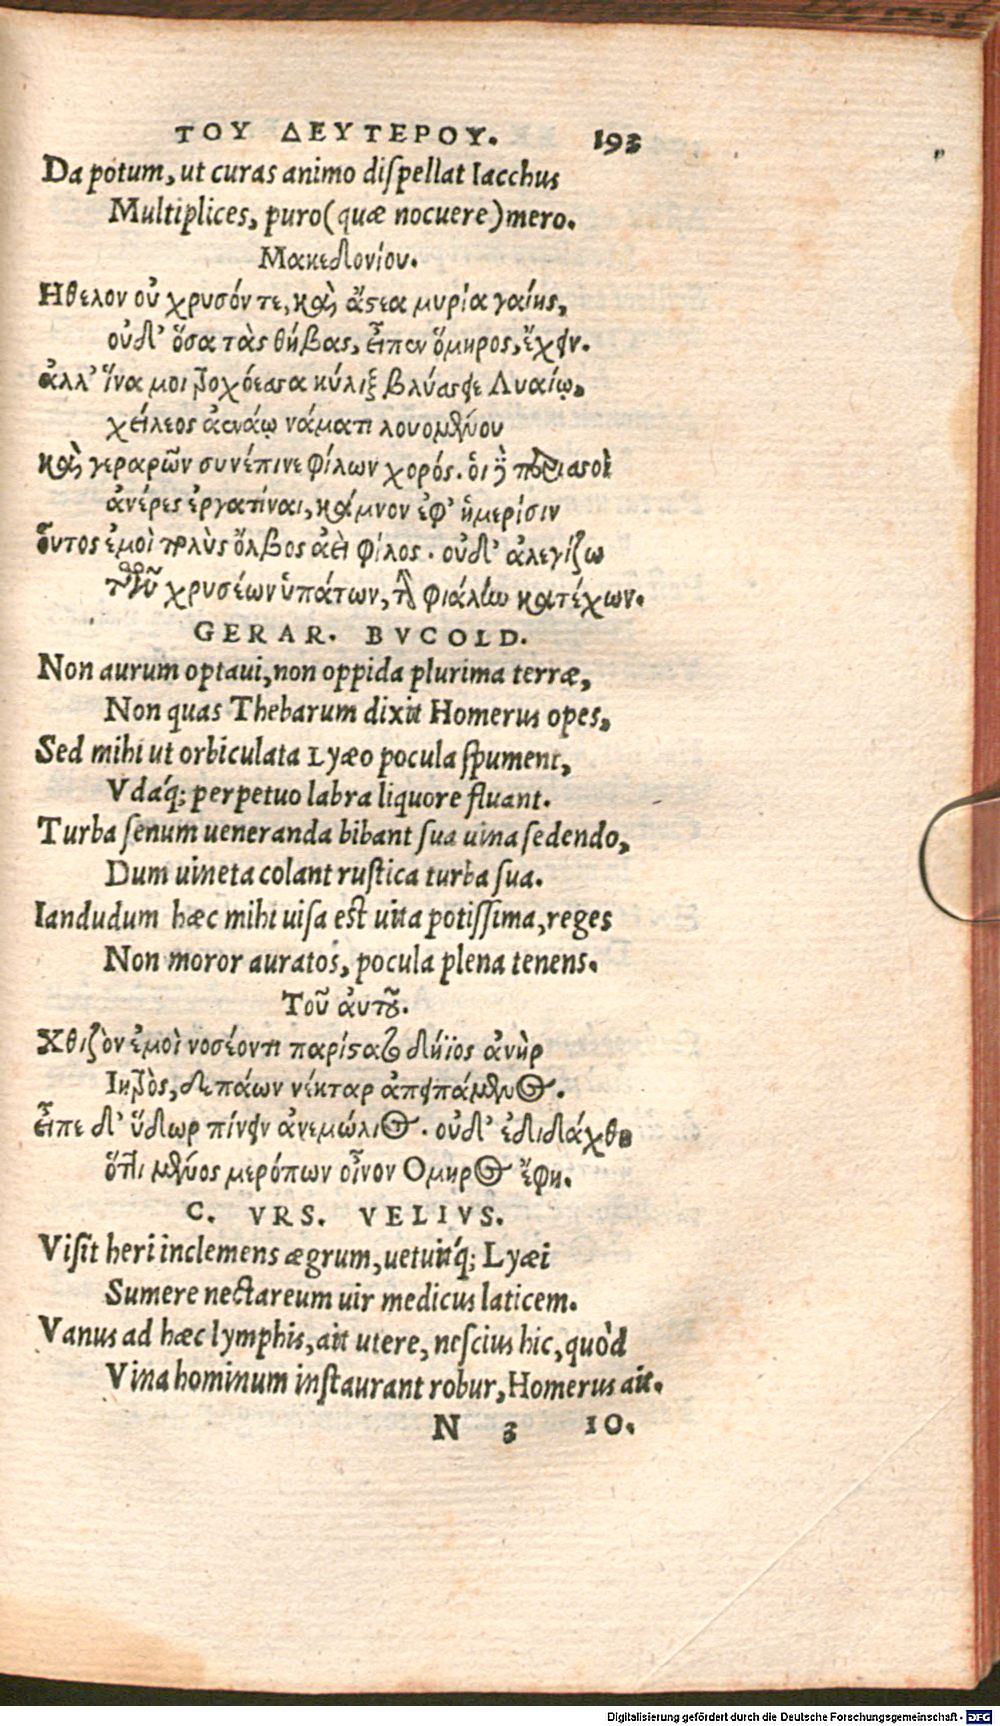 ΤΟΥ ΔΕΥΤΕΡΟΥ. 193
Da potum, ut curas animo diſpellat Iacchus
Multiplices, puro (quæ nocuere) mero.
Μακεδονίου.
Ηθελον οὐ χρυσόν τε, καὶ ἄστεα μυρία γαίης,
οὐδ' ὅσα τὰς θήβας, εἶπεν ὅμηρος, ἔχειν.
ἀλλ' ἵνα μοι τροχόεσσα κύλιξ βλύσσειε Λυαίῳ,
χείλεος ἀενάῳ νάματι λουομένου
καὶ γεραρῶν συνέπινε φίλων χορός. οἱ δὲ περισσοὶ
ἀνέρες ἐργατίναι, κάμνον ἐφ' ἡμερίσιν
οὗτος ἐμοὶ πολὺς ὄλβος ἀεὶ φίλος. οὐδ' ἀλεγίζω
τῶν χρυσέων ὑπάτων, τὴν φιάλην κατέχων.
GERAR. BVCOLD.
Non aurum optaui, non oppida plurima terræ,
Non quas Thebarum dixit Homerus opes,
Sed mihi ut orbiculata Lyæo pocula ſpument,
Vdáq; perpetuo labra liquore fluant.
Turba ſenum ueneranda bibant ſua uina ſedendo,
Dum uineta colant ruſtica turba ſua.
Iandudum hæc mihi uiſa eſt uita potiſſima, reges
Non moror auratos, pocula plena tenens.
Τοῦ ἀυτοῦ.
Χθιζὸν ἐμοὶ νοσέοντι παρίσατο δήϊος ἀνὴρ
Ιητρὸς, δεπάων νέκταρ ἀπειπάμενος.
εἶπε δ' ὕδωρ πίνειν ἀνεμώλιος. οὐδ' ἐδιδάχθη
ὅτι μένος μερόπων οἶνον Ομηρος ἔφη.
C. VRS. VELIVS.
Viſit heri inclemens ægrum, uetuitq́; Lyæi
Sumere nectareum uir medicus laticem.
Vanus ad hæc lymphis, ait utere, neſcius hic, quòd
Vina hominum inſtaurant robur, Homerus ait.
N 3 10.
Digitalisierung gefördert durch die Deutsche Forschungsgemeinschaft - DFG